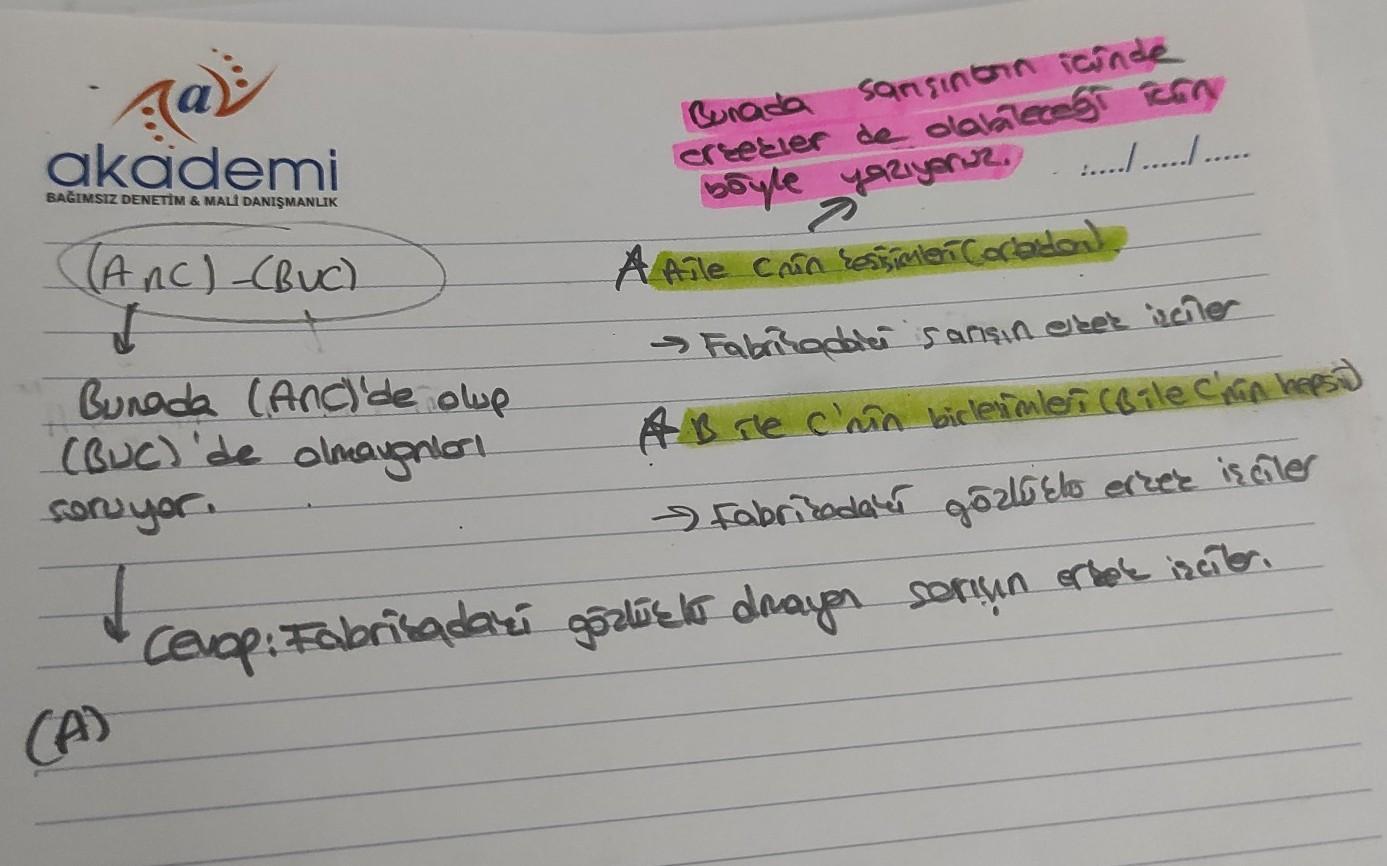 akademi
BAĞIMSIZ DENETİM & MALİ DANIŞMANLIK
Burada sarışının içinde
erkekler de olabileceği için
böyle yazıyoruz.
...../...../.....
(A∩C)-(BUC)
Burada (A∩C)'de olup
(BUC)'de olmayanları
soruyor.
A ile C'nin kesişimleri (ortadan)
→ Fabrikadaki sarışın erkek işçiler
B ile C'nin birleşimleri (B ile C'nin hepsi)
→ Fabrikadaki gözlüklü erkek işçiler
Cevap: Fabrikadaki gözlüklü olmayan sarışın erkek işçiler.
(A)